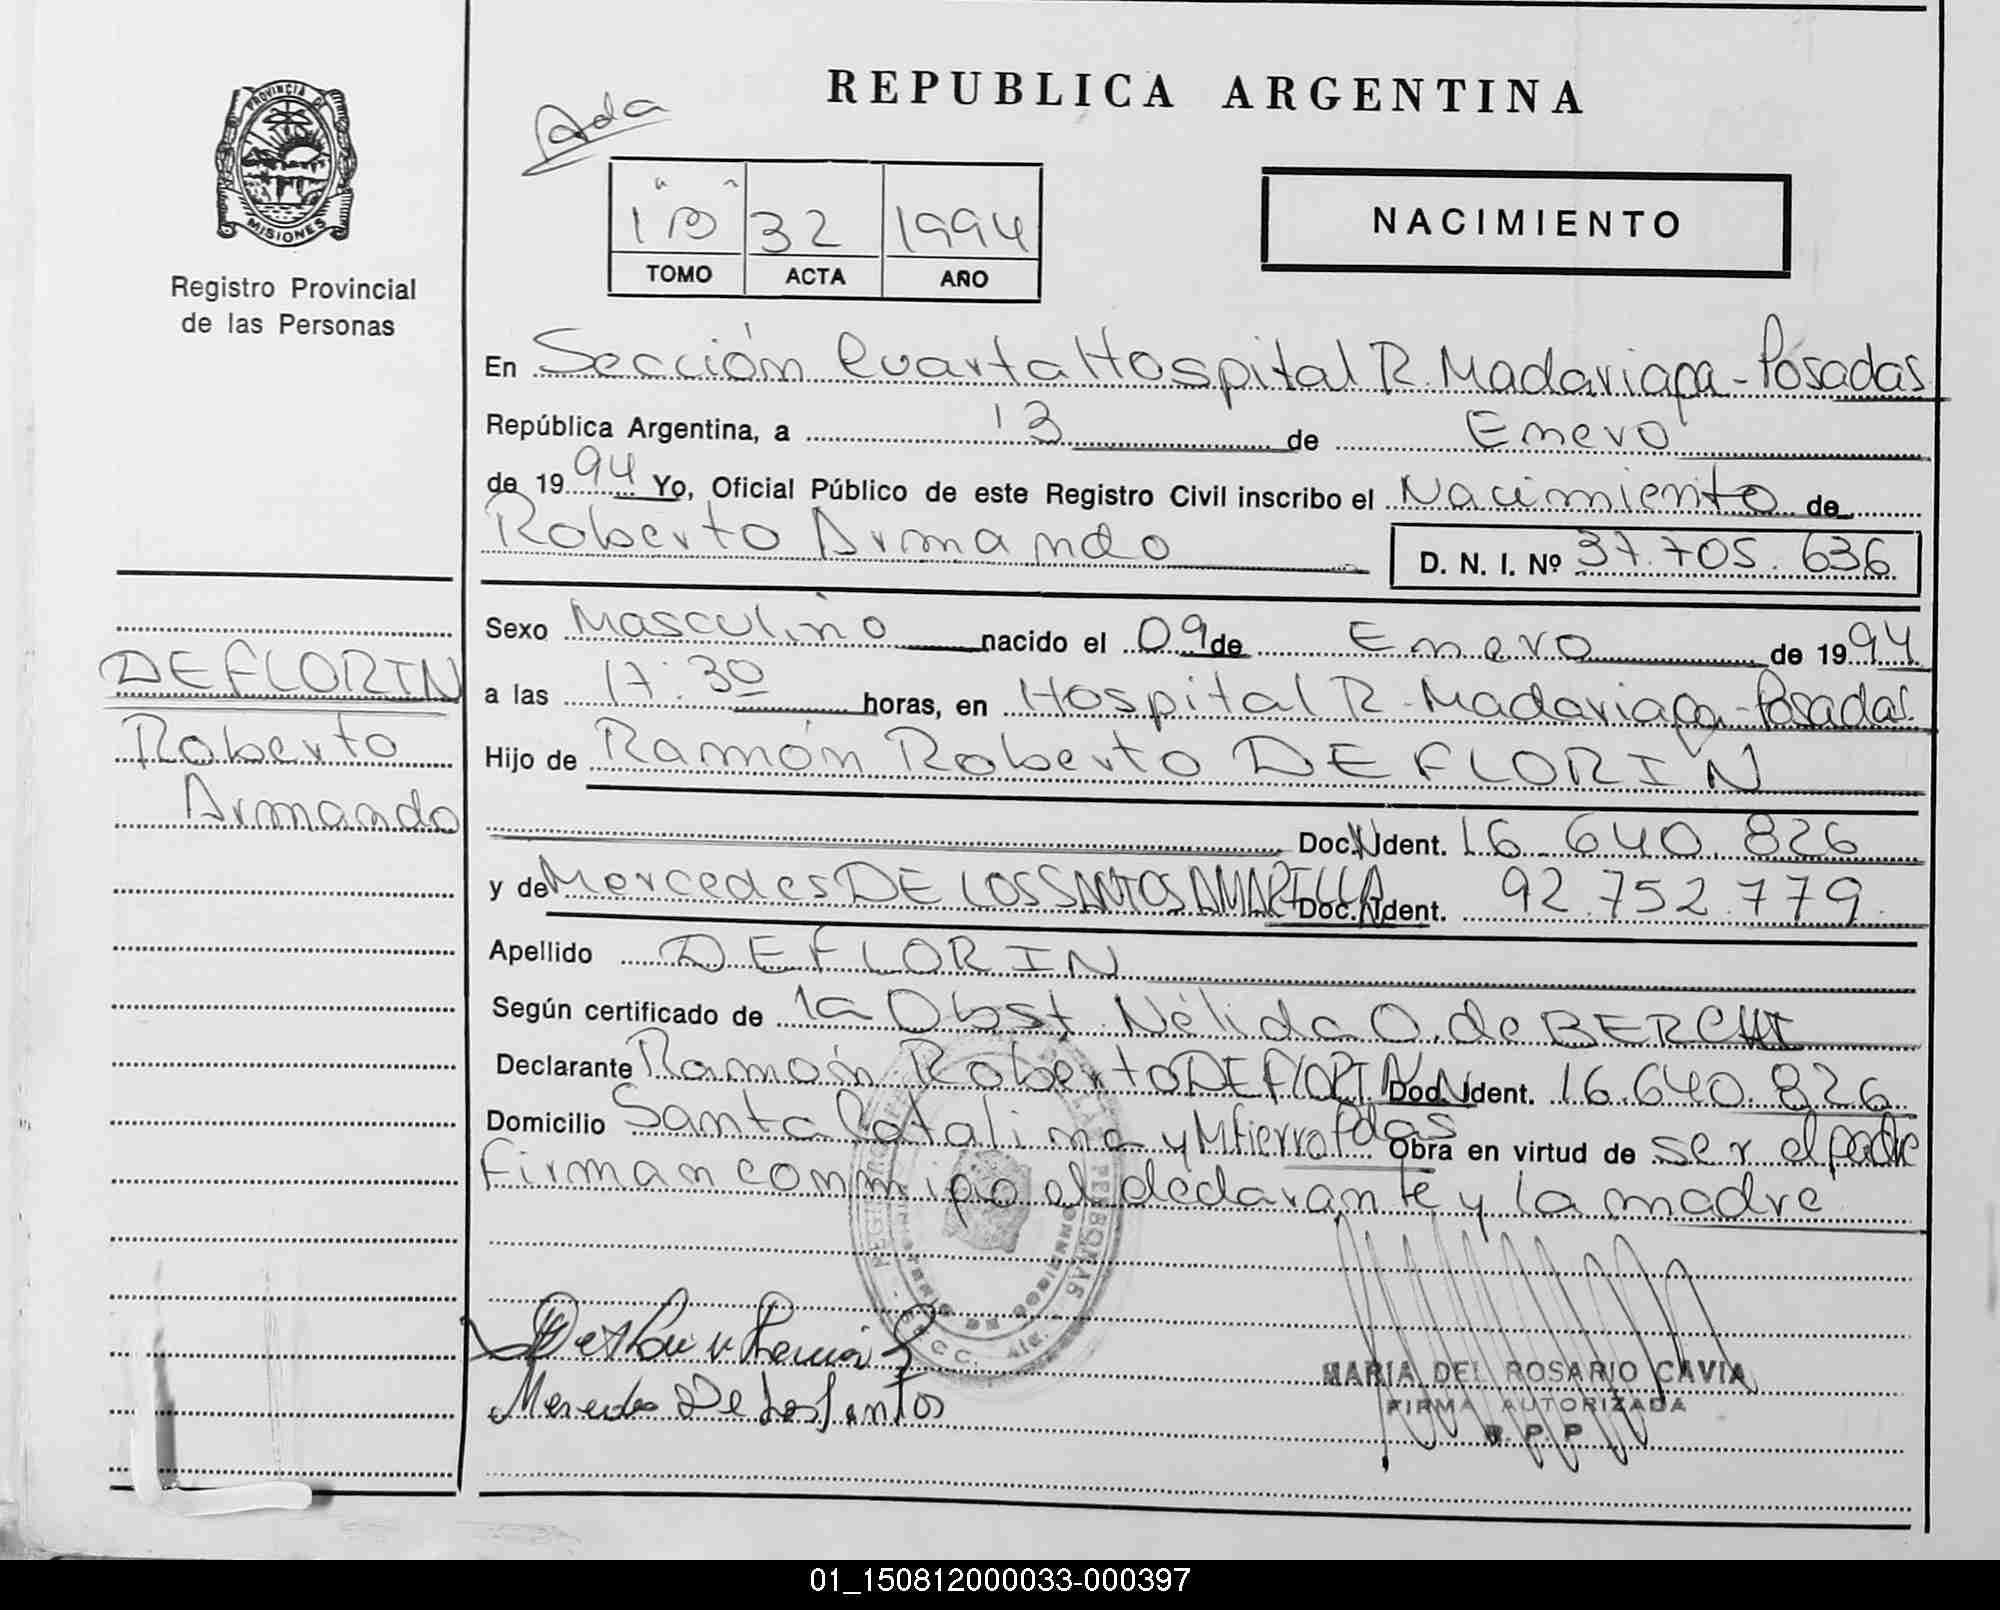 REPUBLICA ARGENTINA
Ada
PROVINCIA DE
MISIONES
Registro Provincial
de las Personas
32 1994
TOMO ACTA AÑO
NACIMIENTO
En Sección Cuarta Hospital R. Madariaga - Posadas
República Argentina, a 13 de Enero
de 1994 Yo, Oficial Público de este Registro Civil inscribo el Nacimiento de
Roberto Armando D. N. I. Nº 37.705.636
Sexo Masculino nacido el 09 de Enero de 1994
a las 17:30 horas, en Hospital R. Madariaga - Posadas
Hijo de Ramón Roberto DEFLORIN
Doc. Ident. 16.640.826
y de Mercedes DE LOS SANTOS AMARILLA Doc. Ident. 92.752.779
Apellido DEFLORIN
Según certificado de la Obst. Nélida O. de BERCHI
Declarante Ramón Roberto DEFLORIN Doc. Ident. 16.640.826
Domicilio Santa Catalina y M Fierro Pdas Obra en virtud de ser el padre
Firman conmigo el declarante y la madre
DEFLORIN
Roberto
Armando
Mercedes De Los Santos
MARIA DEL ROSARIO CAVIA
FIRMA AUTORIZADA
R. P. P.
01_150812000033-000397